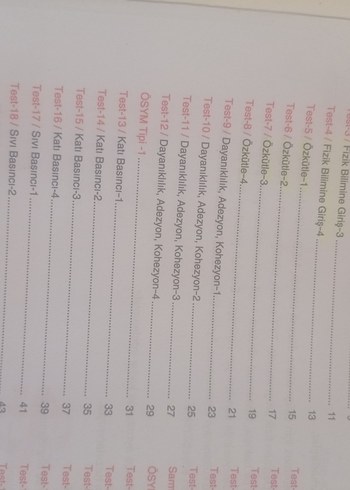 Test-3 / Fizik Bilimine Giriş-3
Test-4 / Fizik Bilimine Giriş-4 11
Test-5 / Özkütle-1 13
Test-6 / Özkütle-2 15
Test-7 / Özkütle-3 17
Test-8 / Özkütle-4 19
Test-9 / Dayanıklılık, Adezyon, Kohezyon-1 21
Test-10 / Dayanıklılık, Adezyon, Kohezyon-2 23
Test-11 / Dayanıklılık, Adezyon, Kohezyon-3 25
Test-12 / Dayanıklılık, Adezyon, Kohezyon-4 27
ÖSYM Tipi -1 29
Test-13 / Katı Basıncı-1 31
Test-14 / Katı Basıncı-2 33
Test-15 / Katı Basıncı-3 35
Test-16 / Katı Basıncı-4 37
Test-17 / Sıvı Basıncı-1 39
Test-18 / Sıvı Basıncı-2 41
43